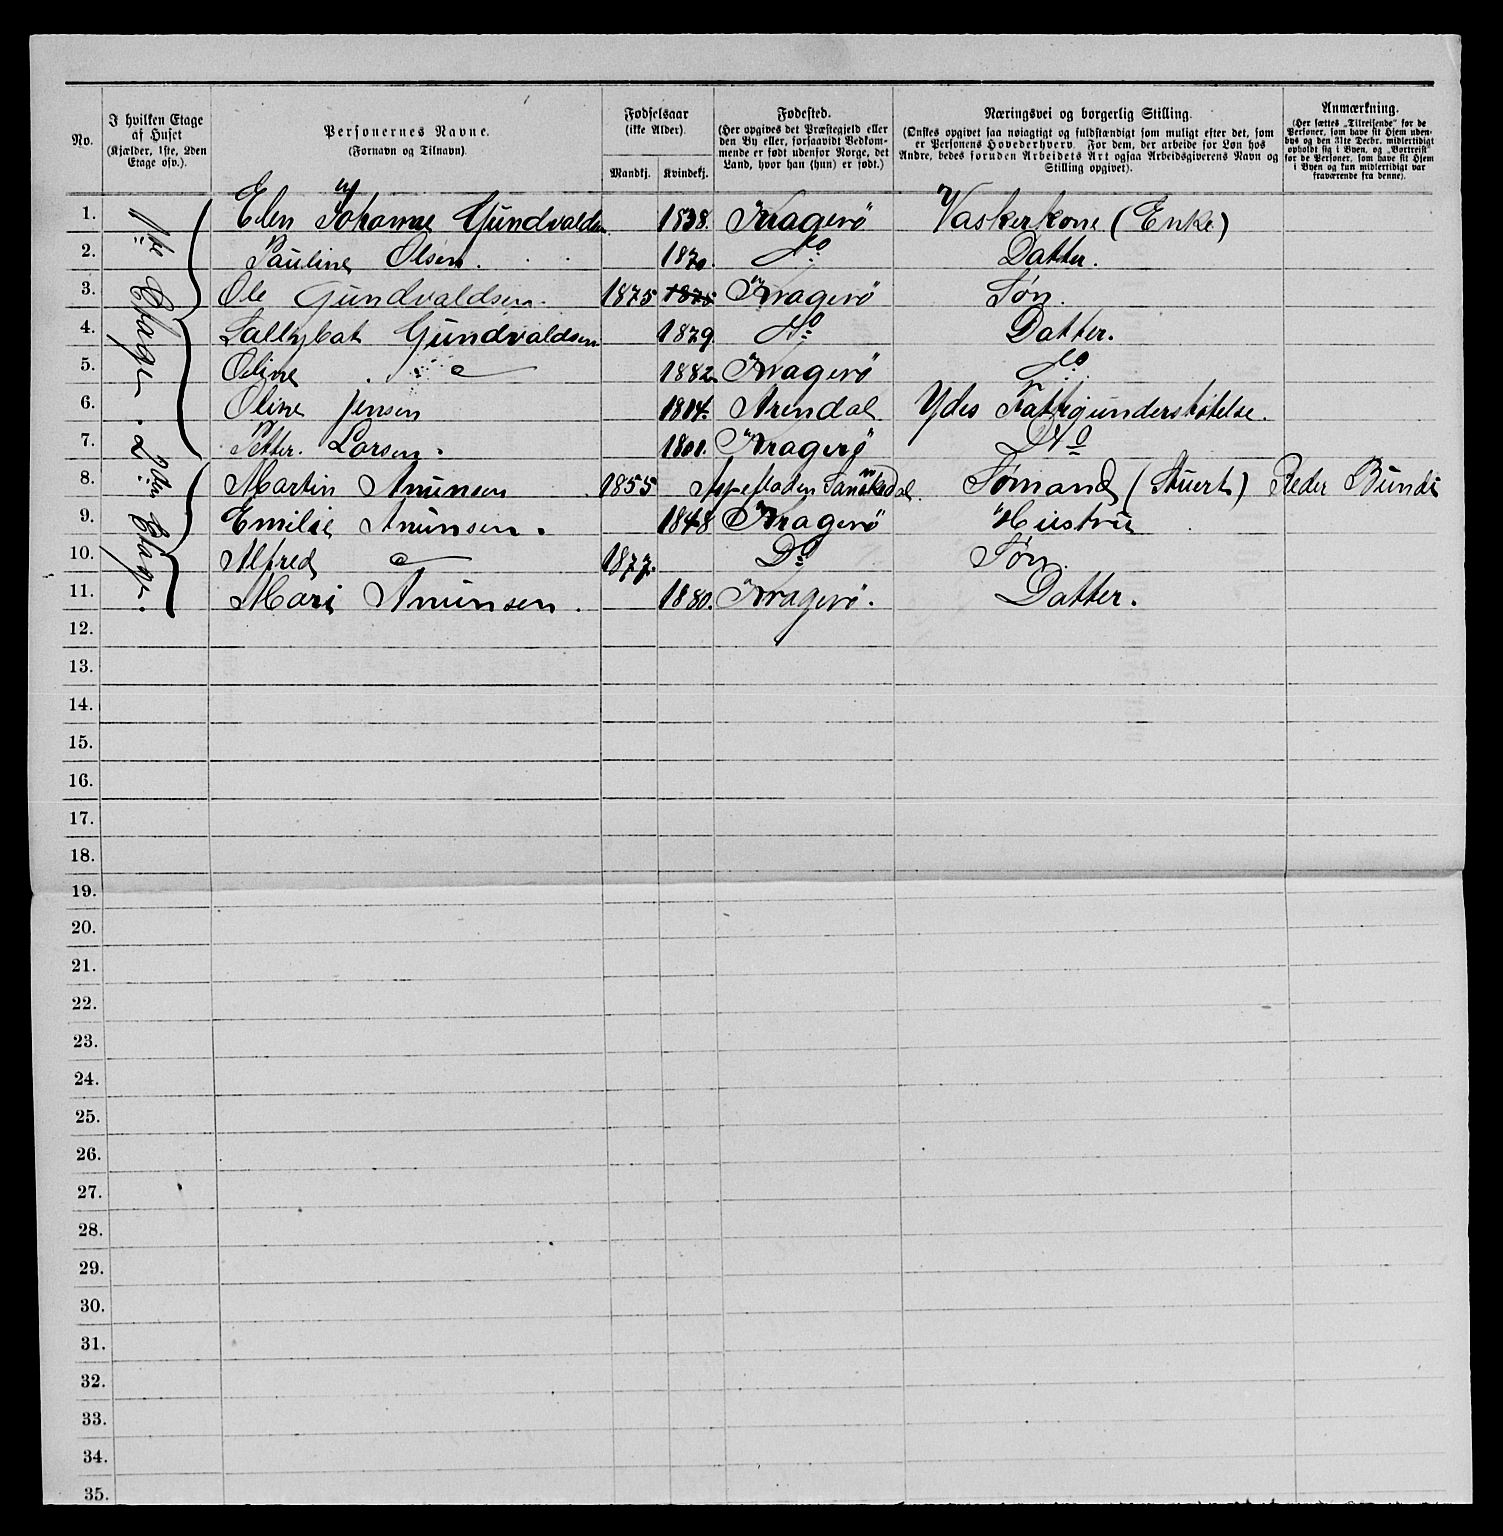 No.
I hvilken Etage af Huset
(Kjælder, 1ste, 2den Etage osv.).
Personernes Navne.
(Fornavn og Tilnavn).
Fødselsaar
(ikke Alder).
Mandkj.
Kvindekj.
Fødested.
(Her opgives det Præstegjeld eller
den By eller, forsaavidt Vedkom-
mende er født udenfor Norge, det
Land, hvor han (hun) er født.)
Næringsvei og borgerlig Stilling.
(Ønskes opgivet saa nøiagtigt og fuldstændigt som muligt efter det, som
er Personens Hovederhverv. For dem, der arbeide for Løn hos
Andre, bedes foruden Arbeidets Art ogsaa Arbeidsgiverens Navn og
Stilling opgivet).
Anmærkning.
(Her sættes „Tilreisende" for de
Personer, som have sit Hjem uden-
bys og den 31te Decbr. midlertidigt
opholdt sig i Byen, og „Bortreist"
for de Personer, som have sit Hjem
i Byen og kun midlertidigt var
fraværende fra denne).
1ste Etage. 2den Etage.
1. Elen Johanne Gundvaldsen 1838. Kragerö Vaskerkone (Enke)
2. Pauline Olsen. 1870. do Datter.
3. Ole Gundvaldsen. 1875 1875 Kragerö Søn.
4. Gundvaldsen 1879 do Datter.
5. Oline 1882 Kragerö do
6. Oline Jensen 1814. Arendal Ydes Fattigunderstøtelse.
7. Petter. Larsen. 1801. Kragerö Do
8. Martin Anunsen 1855 Sannikedal. Sømand (Stuert) Reder Bundi
9. Emilie Anunsen. 1848 Kragerö Hustru
10. Alfred 1877. Do Søn.
11. Mari Anunsen. 1880. Kragerö. Datter.
12.
13.
14.
15.
16.
17.
18.
19.
20.
21.
22.
23.
24.
25.
26.
27.
28.
29.
30.
31.
32.
33.
34.
35.